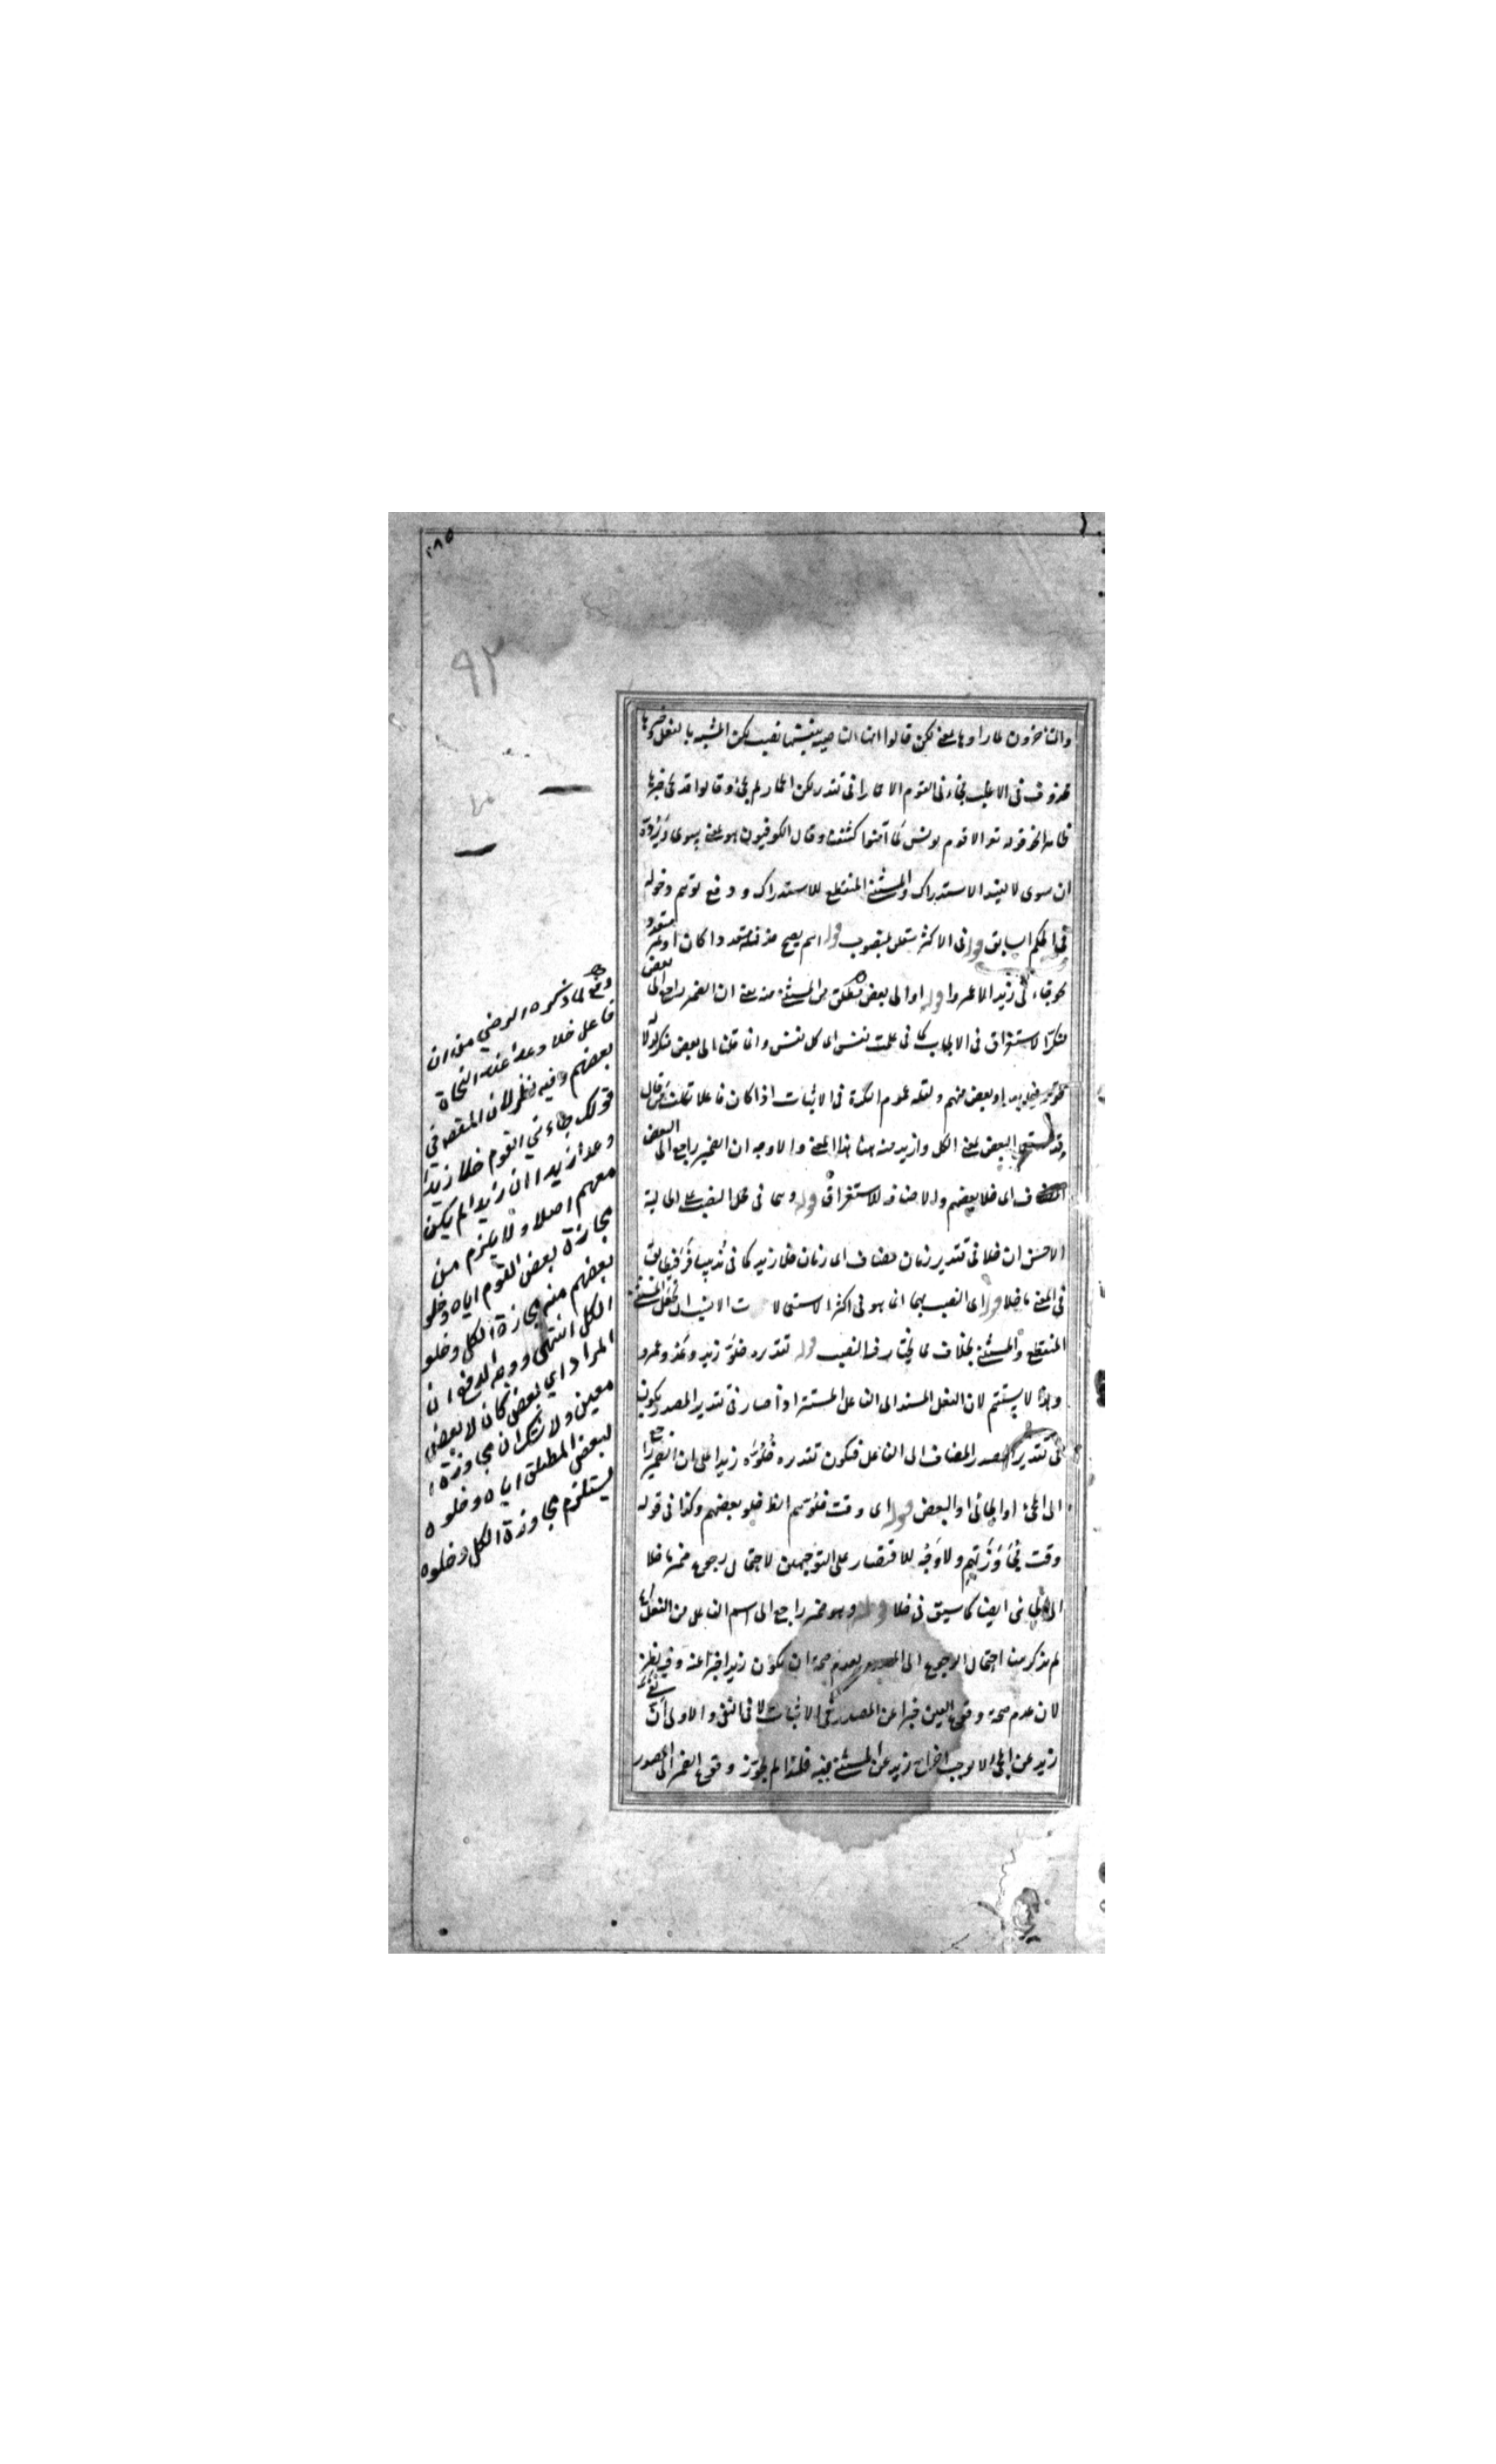 ٢٨٥
٩٢
والمتأخرون لما راوها بمعنى لكن قالوا انها الناصبة بنفسها نصب لكن المشبه بالفعل وخبرها
محذوف في الاغلب فجاءني القوم الا حمارا في تقدير لكن حمارا لم يجئ وقالوا قد يجئ خبرها
ظاهرا نحو قوله تعالى الا قوم يونس لما آمنوا كشفنا وقال الكوفيون هو بمعنى سوى
ان سوى لا يفيد الاستدراك والمستثنى المنقطع للاستدراك ودفع توهم دخوله
في الحكم السابق قوله في الاكثر متعلق بمنصوب قوله اسم يصح متعددا كان او غير متعدد
نحو ما جاءني زيد الا عمروا قوله او الى بعض مطلق من المستثنى منه يعني ان الضمير راجع الى بعض
منكر للاستغراق في الايجاب كما في علمت نفس اى كل نفس وانما قلنا الى بعض منكر
او بعض منهم ولعله عموم النكرة في الاثبات اذا كان فاعلا
البعض بمعنى الكل وازيد منه هنا هذا المعنى والاوجه ان الضمير راجع الى البعض
المضاف اى خلا بعضهم والاضافة للاستغراق قوله وهما في محل النصب على الحالية
الاحسن ان خلا في تقدير زمان مضاف اى زمان خلا زيد كما في
في المعنى ما خلا قوله اى النصب بهما انما هو في اكثر الاستعمالات
المنقطع والمستثنى بخلاف ما يختار فيه النصب قوله تقديره خلو زيد وعدو عمرو
وهذا لا يستقيم لان الفعل المسند الى الفاعل المستتر اذا صار في تقدير المصدر يكون
في تقدير المصدر المضاف الى الفاعل فيكون تقديره خلوه زيدا على ان الضمير راجع
الى المجئ او الجائي او البعض قوله اى وقت خلوهم الظ خلو بعضهم وكذا في قوله
وقت مجاوزتهم ولا وجه للاقتصار على التوجيهين لاحتمال رجوع ضمير ما خلا
الى الجائي ايضا كما سبق في خلا قوله وهو ضمير راجع الى اسم الفاعل من الفعل
لم يذكر هنا احتمال الرجوع الى المصدر لعدم صحة ان يكون زيدا خبرا عنه وفيه نظر
لان عدم صحة وقوع العين خبرا عن المصدر في الاثبات لا في النفي والاولى ان نفي
زيد عن المجئ لا يوجب اخراج زيد عن المستثنى منه فلهذا لم يجوز وقوع الضمير الى المصدر
دفع لما ذكره الرضي من ان
فاعل خلا وعدا عند النحاة
بعضهم وفيه نظر لان المقصود في
قولك جاءني القوم خلا زيدا
وعدا زيدا ان زيدا لم يكن
معهم اصلا ولا يلزم من
مجاوزة بعض القوم اياه وخلو
بعضهم منه مجاوزة الكل وخلو
الكل انتهى ووجه الدفع ان
المراد اي بعض كان لا بعض
معين ولا شك ان مجاوزة ا
لبعض المطلق اياه وخلوه
يستلزم مجاوزة الكل وخلوه